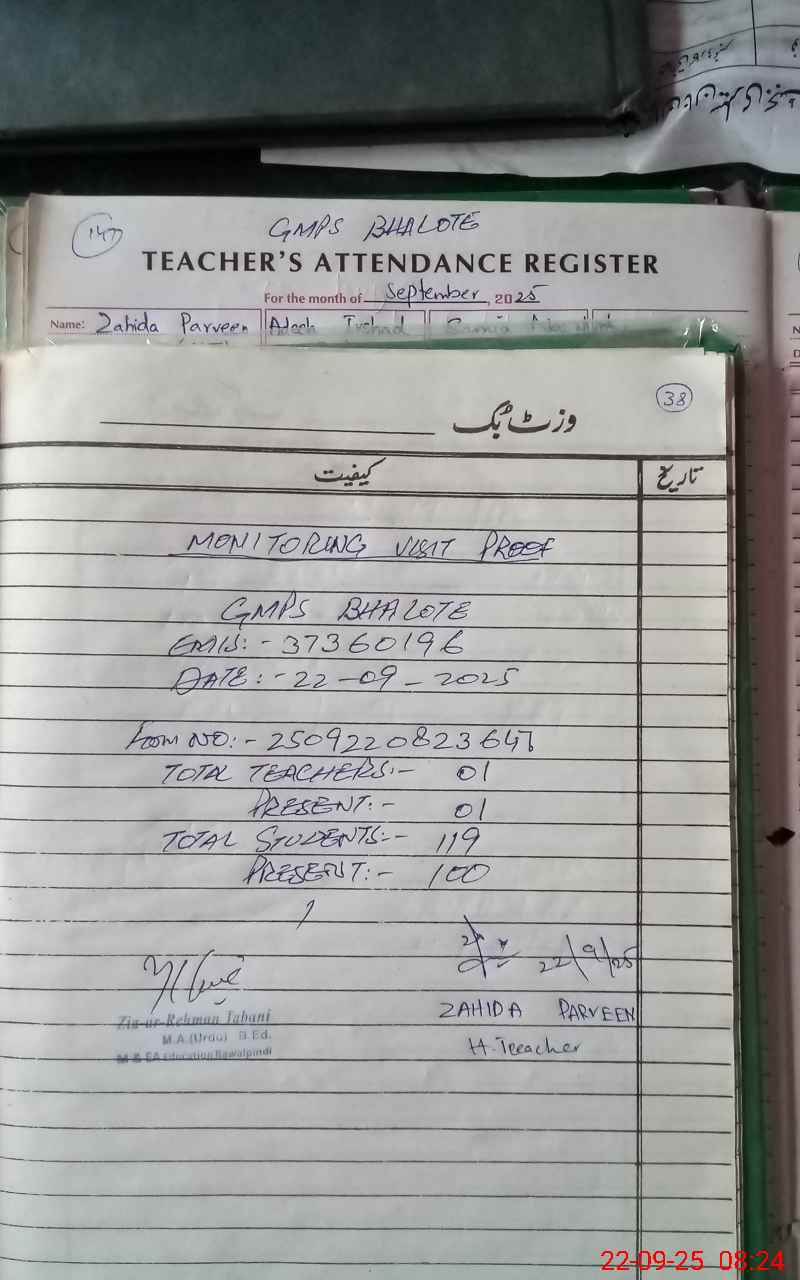 147
GMPS BHALOTE
TEACHER'S ATTENDANCE REGISTER
For the month of September, 2025
Name: Zahida Parveen Adeela Irshad
38
وزٹ بُک
کیفیت تاریخ
MONITORING VISIT PROOF
GMPS BHALOTE
EMIS:- 37360196
DATE:- 22-09-2025
Form NO:- 250922082364
TOTAL TEACHERS:- 01
PRESENT:- 01
TOTAL STUDENTS:- 119
PRESENT:- 100
22/9/25
Zia-ur-Rehman Tabani
ZAHIDA PARVEEN
M.A (Urdu) B.Ed.
H.Teeacher
M & EA Education Rawalpindi
22-09-25 08:24